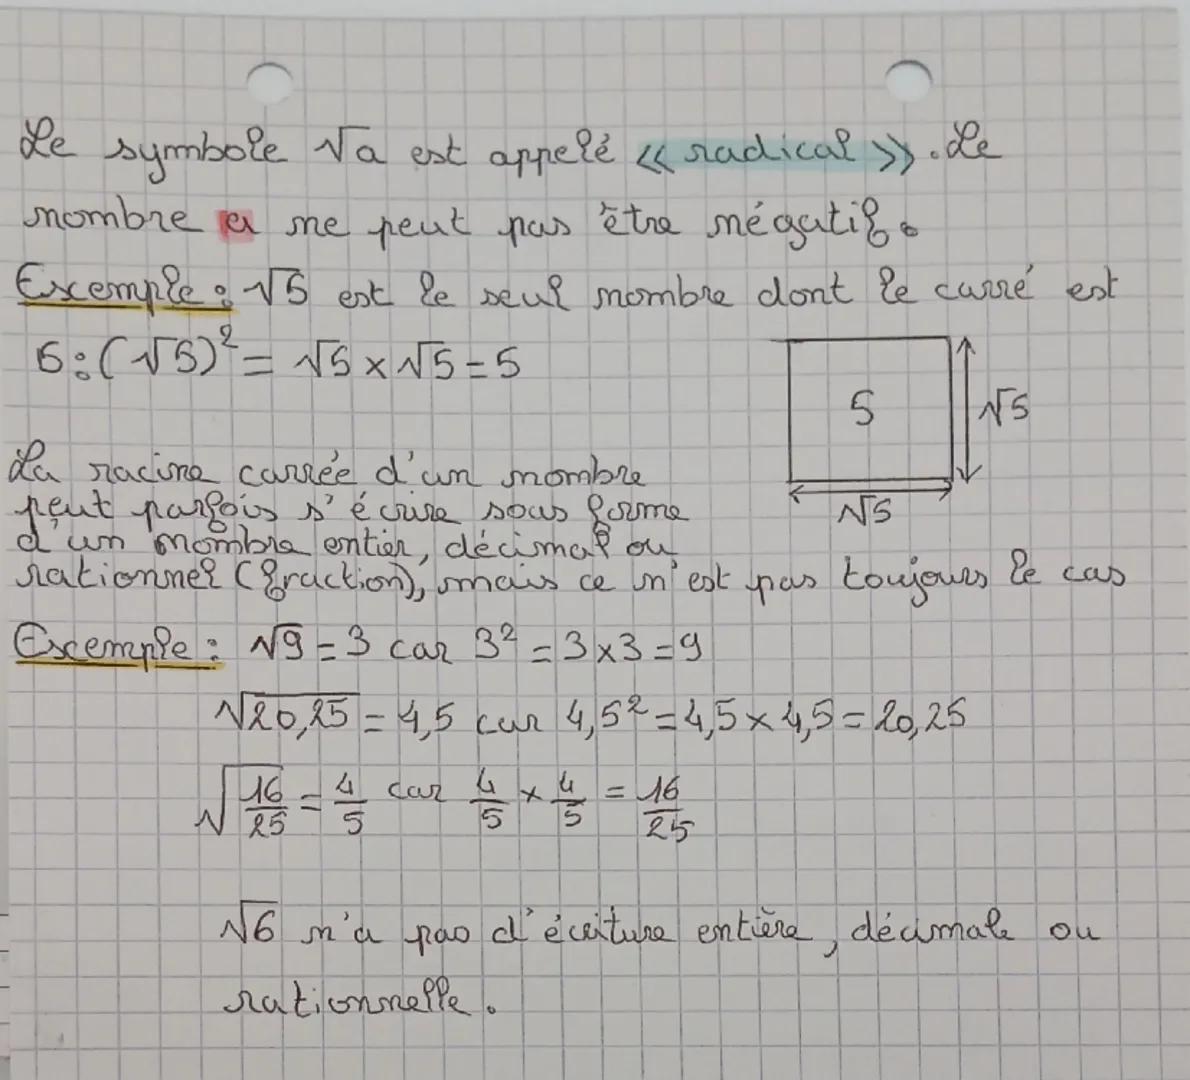 Le symbole √a est appelé « radical ». Le
nombre a ne peut pas être négatif.
Exemple : √5 est le seul nombre dont le carré est
5 : (√5)² = √5 × √5 = 5
5
√5
√5
La racine carrée d'un nombre
peut parfois s'écrire sous forme
d'un nombre entier, décimal ou
rationnel (fraction), mais ce n'est pas toujours le cas
Exemple : √9 = 3 car 3² = 3×3 = 9
√20,25 = 4,5 car 4,5² = 4,5 × 4,5 = 20,25
√16/25 = 4/5 car 4/5 × 4/5 = 16/25
√6 n'a pas d'écriture entière, décimale ou
rationnelle.